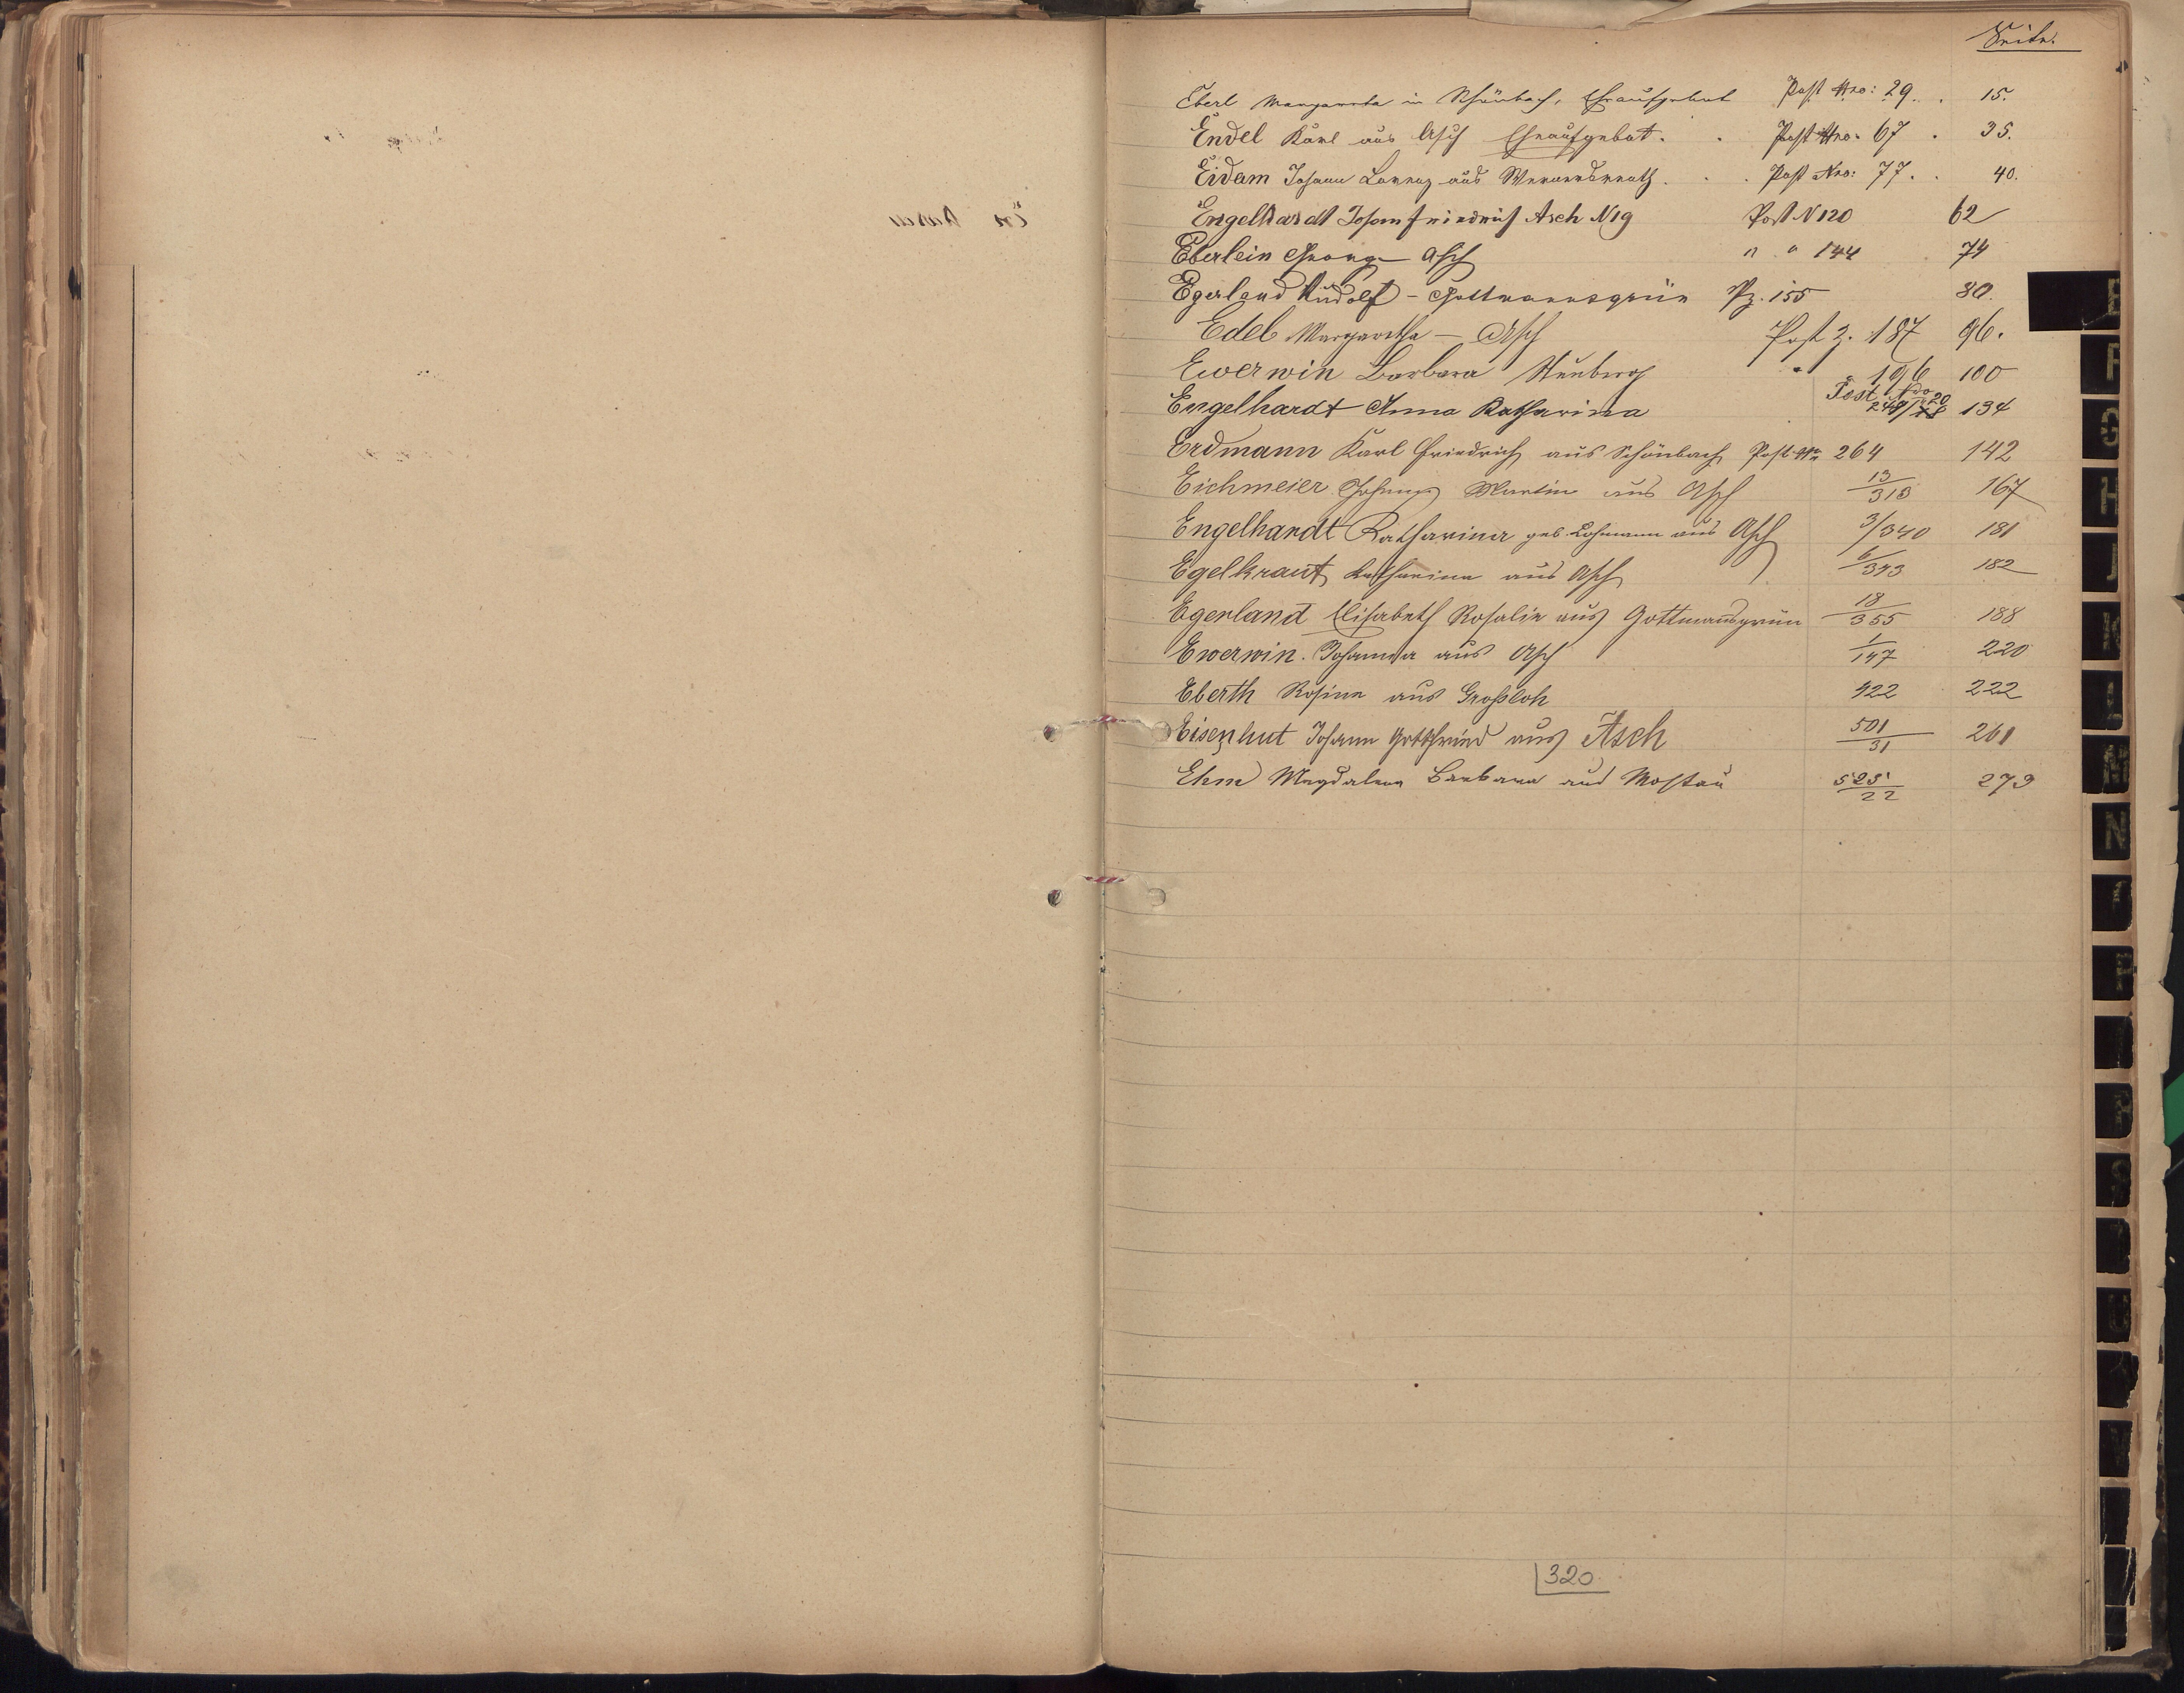 Seite.
Eberl Margaretha in Schönbach, Eheaufgebot Post Nro: 29. . 15.
Endel Karl aus Asch Eheaufgebot. . Post Nro. 67 . 35.
Eidam Johann Lorenz aus Wernersreuth. . . Post Nro: 77. . 40.
Engelhardt Johann Friedrich Asch N 19 Post N 120 62
Eberlein Georg Asch " " 144 74
Egerland Rudolf - Gottmannsgrün Pz. 155 80.
Edel Margaretha — Asch Post Z. 187 96.
Ewerwin Barbara Neuberg " 196 100
Engelhardt Anna Katharina Post Nro 20 249/78 134
Erdmann Karl Friedrich aus Schönbach Post Nr 264 142
Eichmeier Johann Martin aus Asch 13/313 167
Engelhardt Katharina geb. Lohmann aus Asch 3/340 181
Egelkraut Katharina aus Asch 6/343 182
Egerland Elisabeth Rosalie aus Gottmansgrün 18/355 188
Ewerwin. Johanna aus Asch 1/147 220
Eberth Rosina aus Grossloh 422 222
Eisenhut Johann Gottfried aus Asch 501/31 261
Ehm Magdalena Barbara aus Mostau 525/22 273
320
E
F
G
H
J
K
L
M
N
P
R
S
U